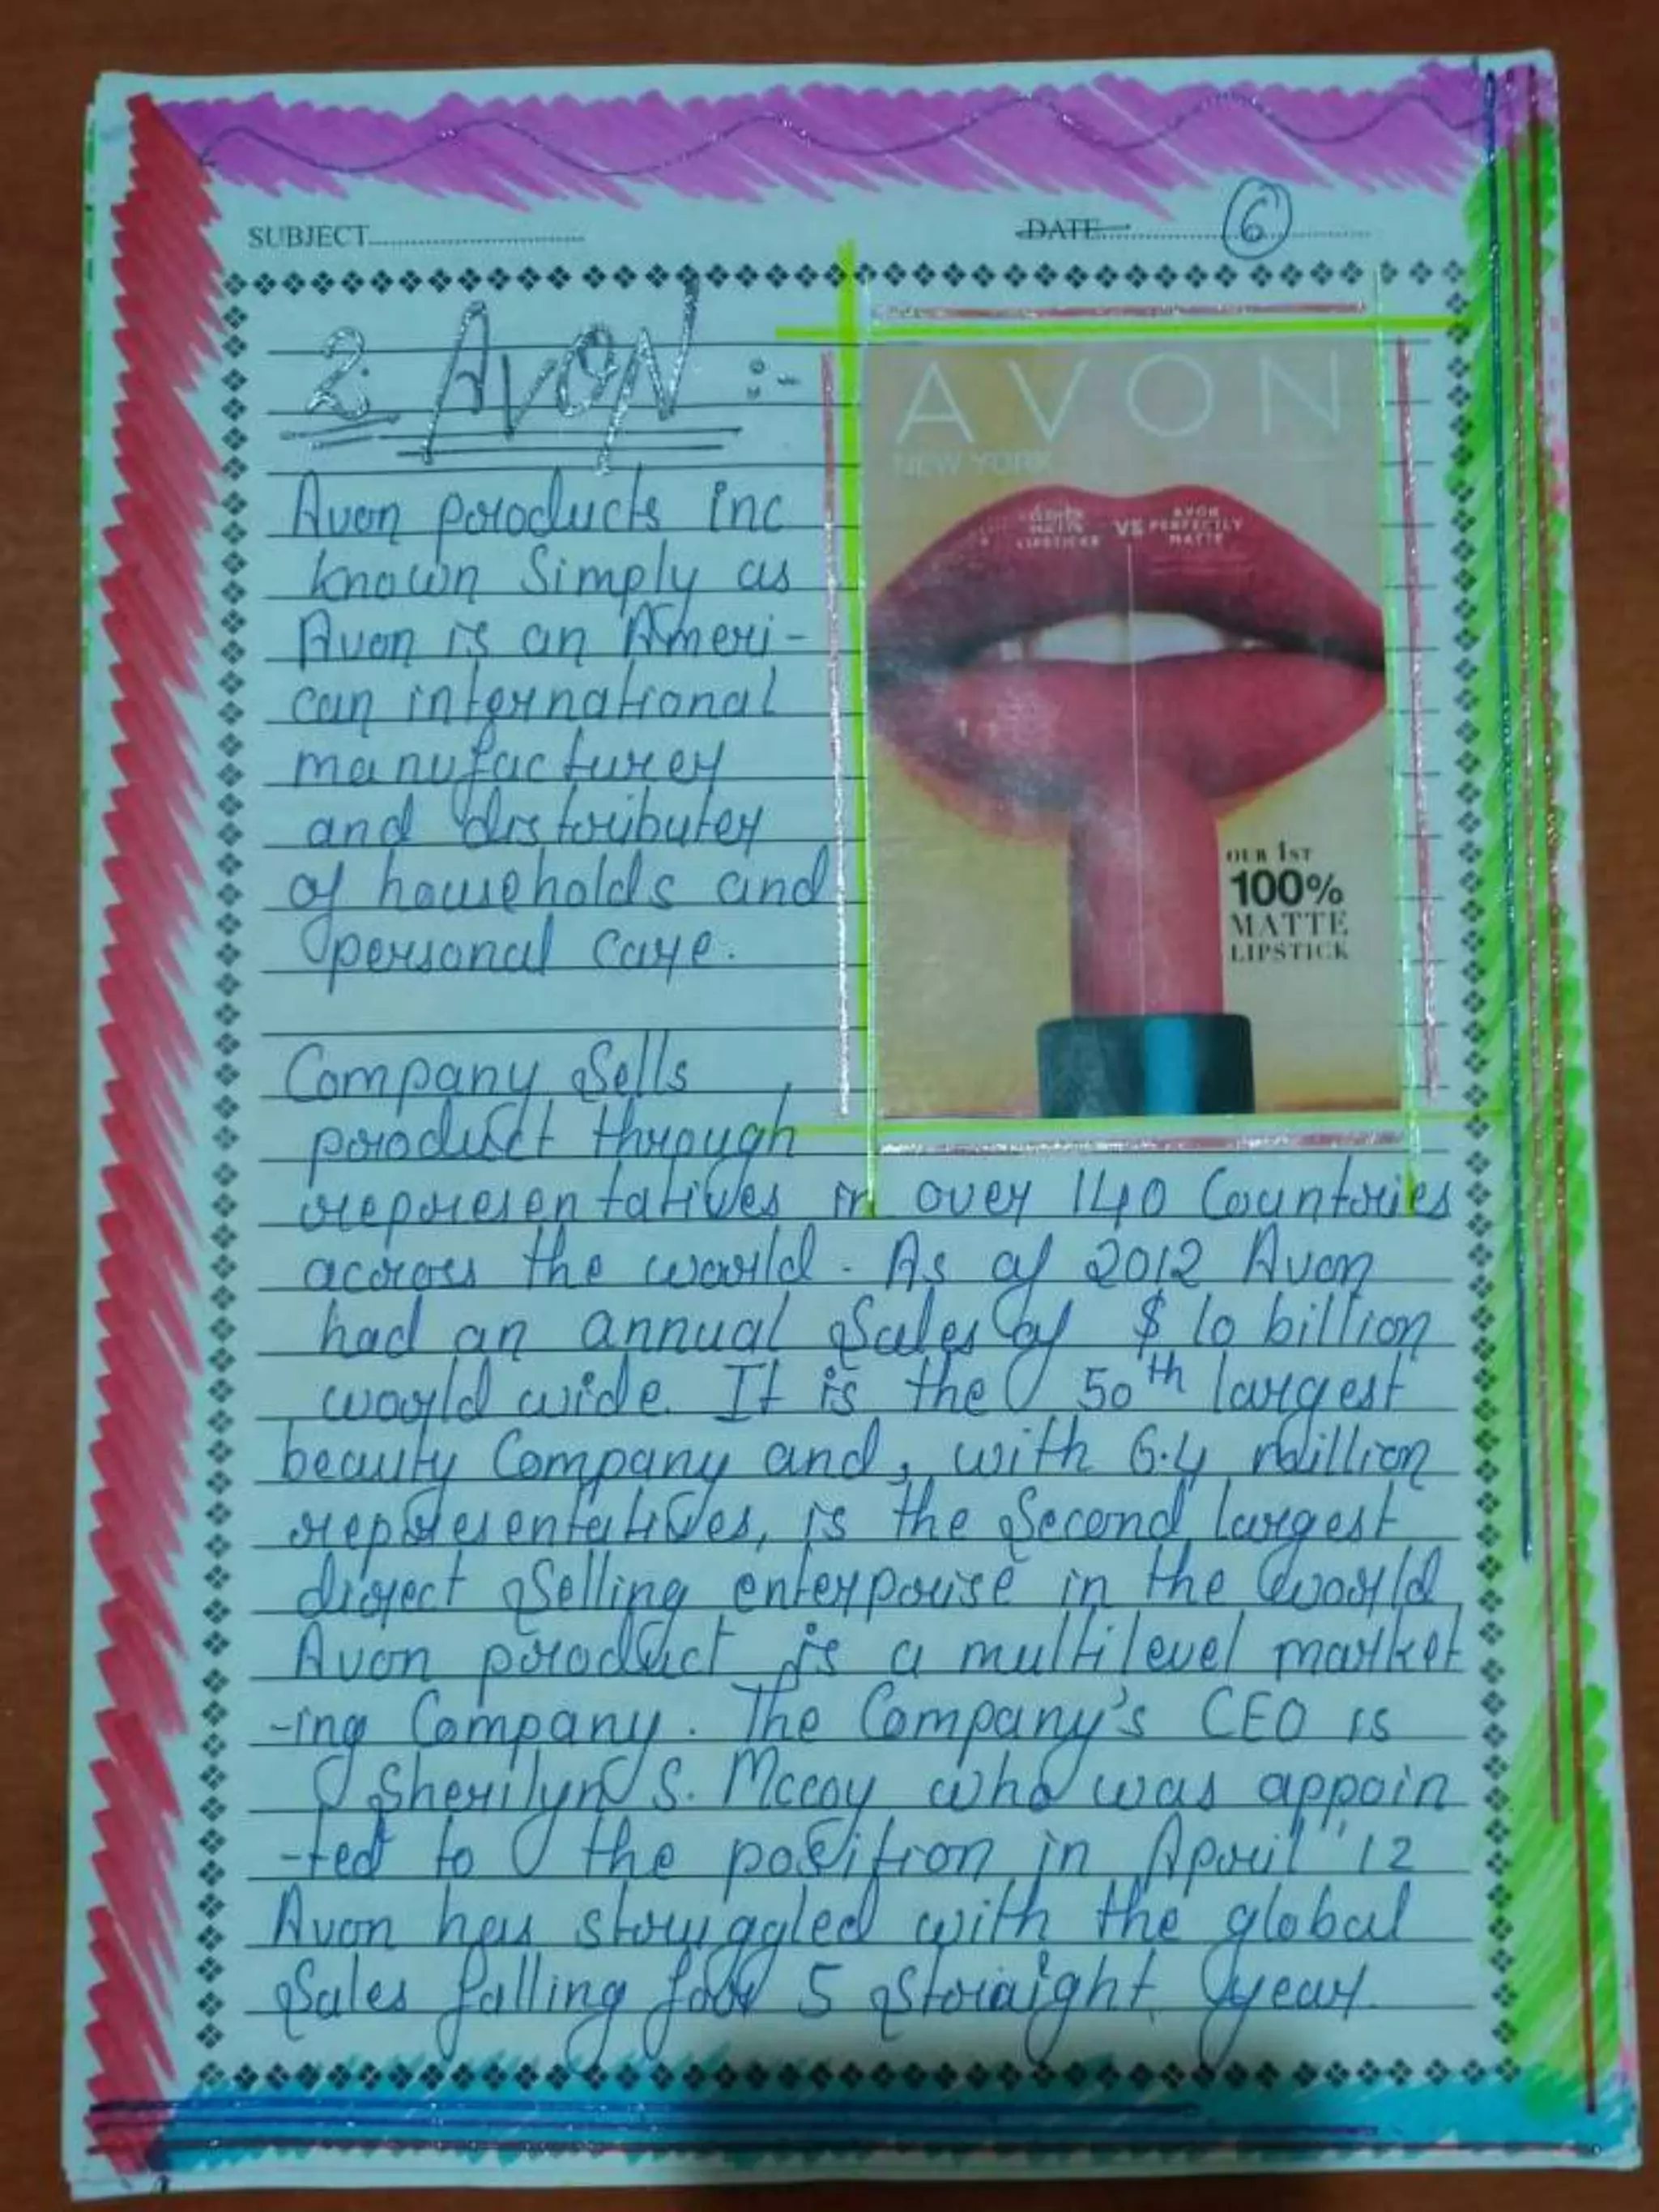 SUBJECT
DATE
6
2. AVON :-
Avon products inc
known Simply as
Avon is an Ameri-
can international
manufacturer
and distributer
of households and
personal care.
AVON
NEW YORK
MATTE
LIPSTICKS
VS
AVON
PERFECTLY
MATTE
OUR 1ST
100%
MATTE
LIPSTICK
Company Sells
product through
representatives in over 140 Countries
across the world. As of 2012 Avon
had an annual Sales of $ 10 billion
world wide. It is the 50th largest
beauty Company and, with 6.4 million
representatives, is the Second largest
direct Selling enterprise in the world
Avon product is a multilevel market
-ing Company. The Company's CEO is
Sherilyn S. Mccoy who was appoin
-ted to the position in April '12
Avon has struggled with the global
Sales falling for 5 Straight year.